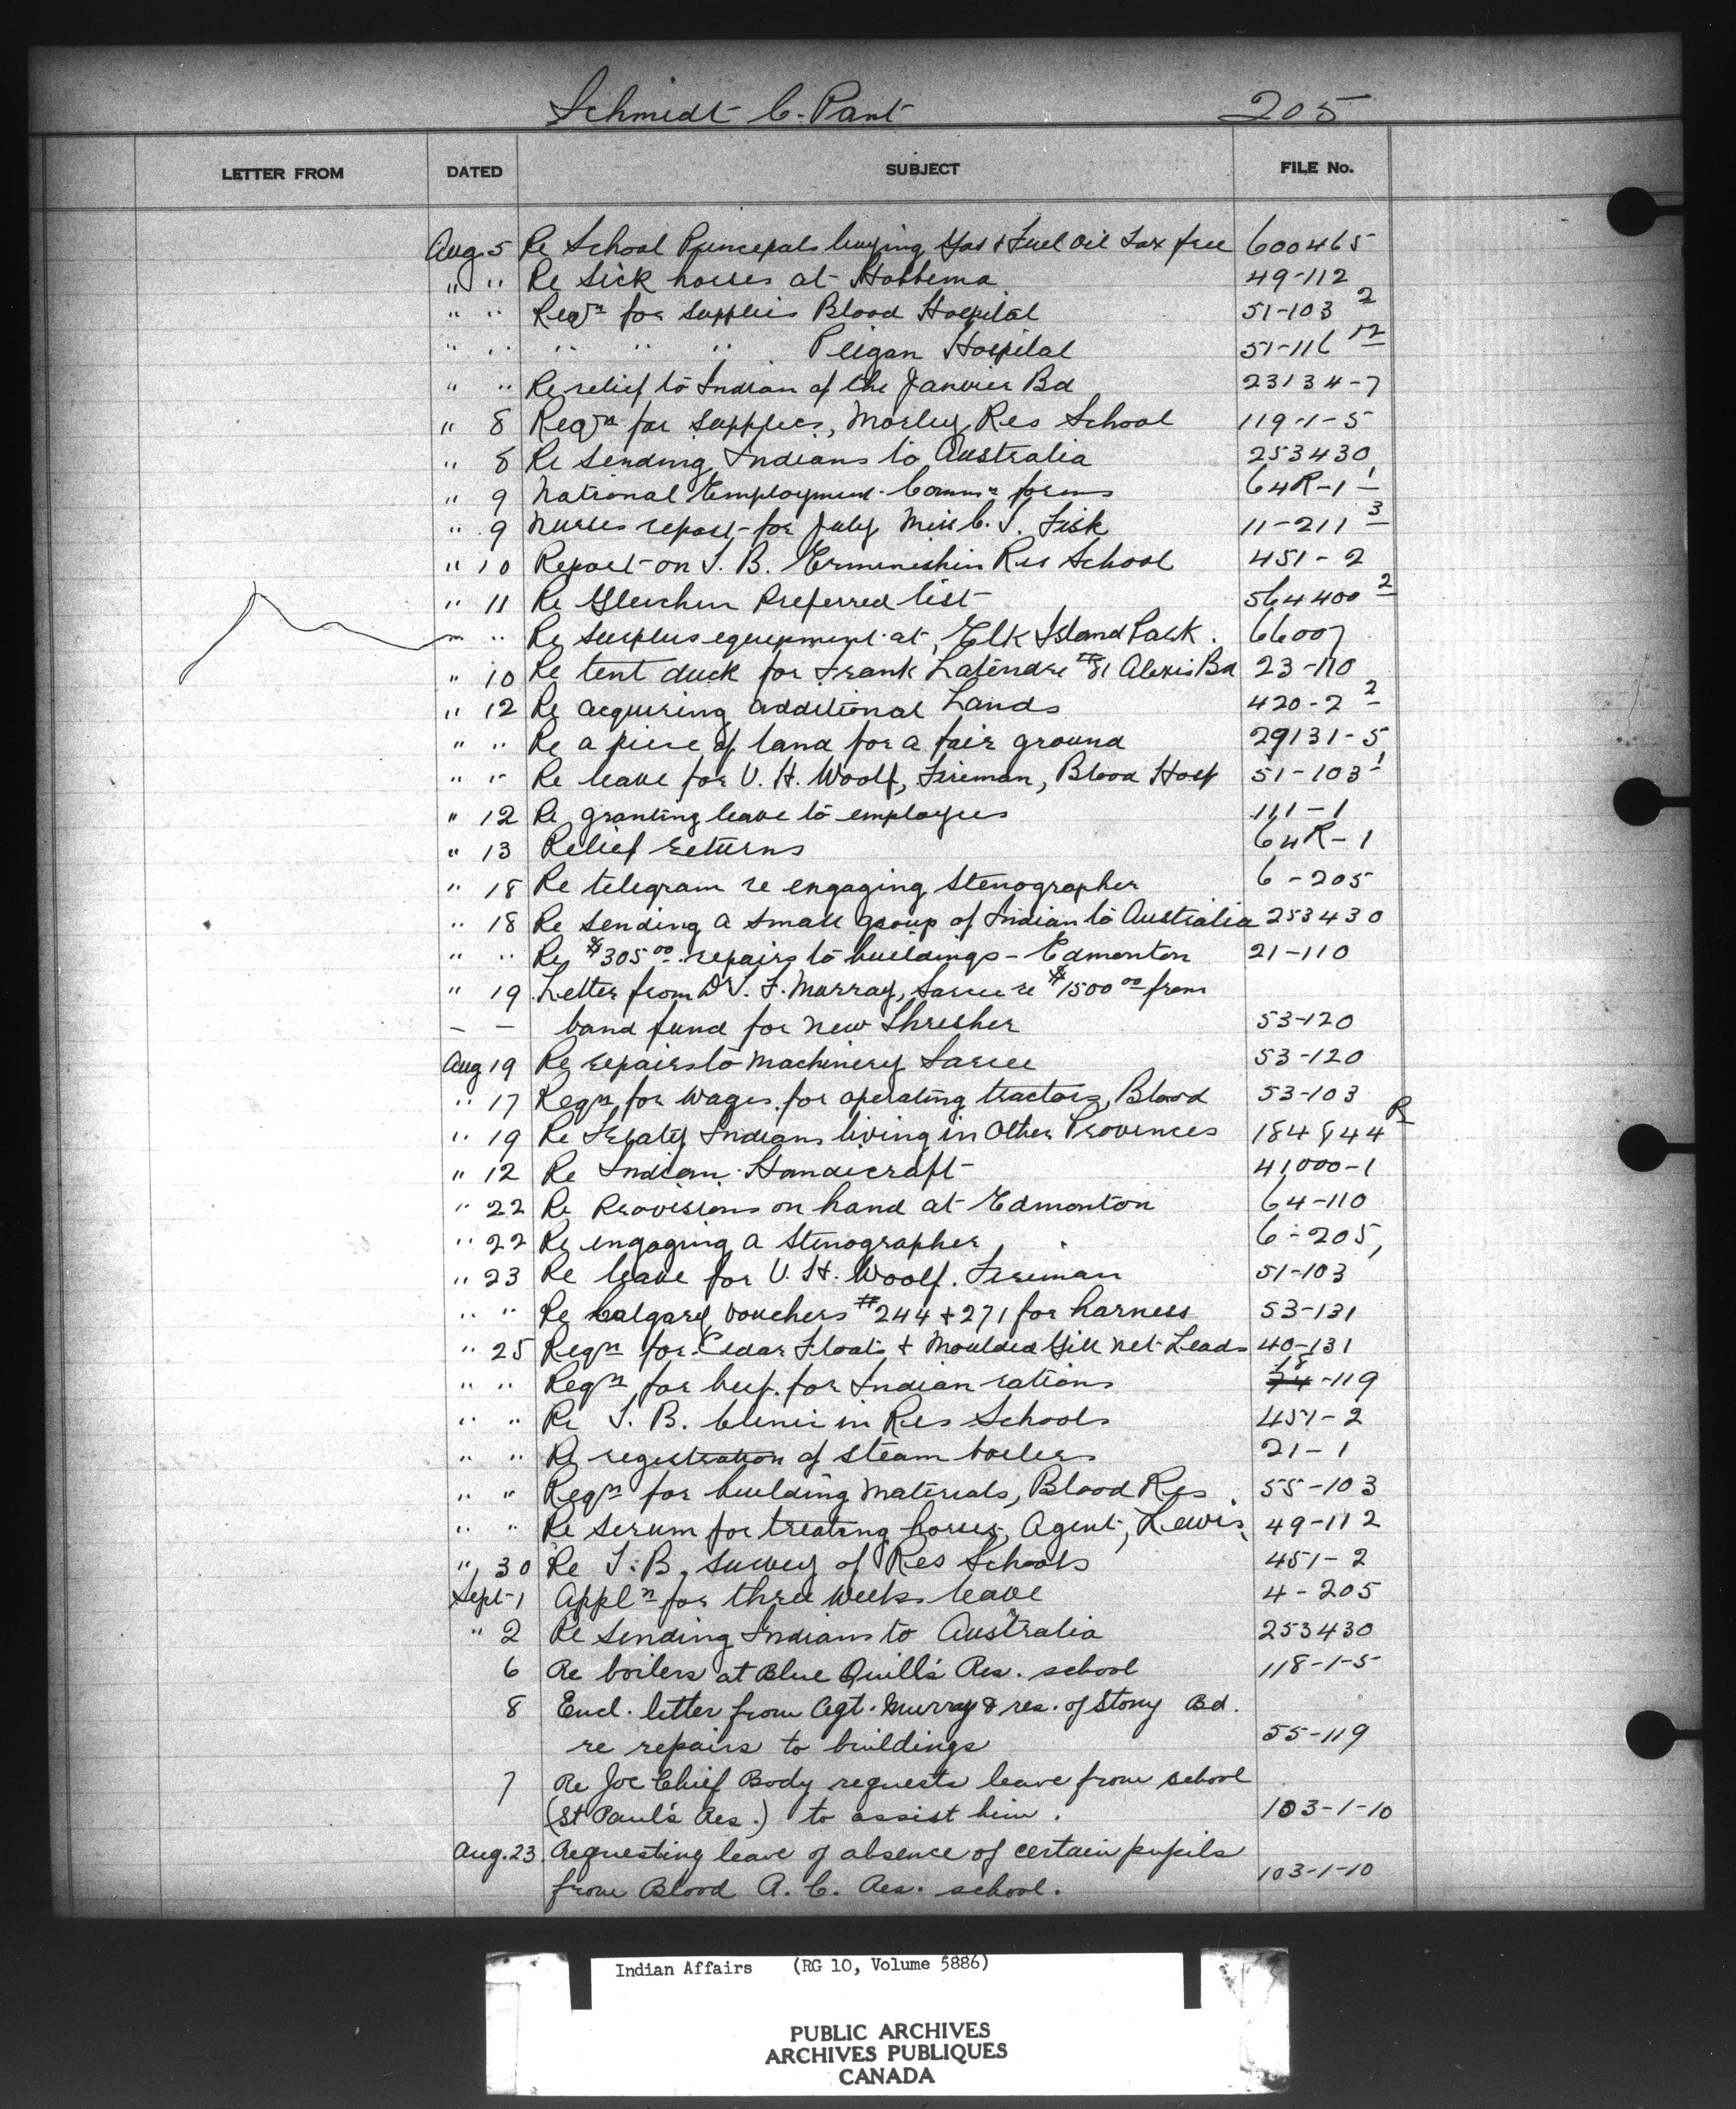 Schmidt C. Pant 205
LETTER FROM DATED SUBJECT FILE No.
Aug 5 Re School Principals buying Gas & Fuel Oil Tax free 600465
" " Re Sick horses at Hobbema 49-112
" " Reqn for supplies Blood Hospital 51-103 2
" " " " " Peigan Hospital 51-116
" " Re relief to Indian of the Janvier Bd 23134-7
" 8 Reqn for supplies, Morley Res School 119-1-5
" 8 Re sending Indians to Australia 253430
" 9 National Employment Commn forms 64R-1 1
" 9 Nurses report for July Miss C. J. Fisk 11-211 3
" 10 Report on T. B. Ermineskin Res School 451-2
" 11 Re Gleichen Preferred list 564400 2
" " Re surplus equipment at Elk Island Park. 66007
" 10 Re tent duck for Frank Latendre #81 Alexis Bd 23-110
" 12 Re acquiring additional Lands 420-2 2
" " Re a piece of land for a fair ground 29131-5
" " Re leave for V. H. Woolf, Fireman, Blood Hosp 51-103 1
" 12 Re granting leave to employees 111-1
" 13 Relief returns 64R-1
" 18 Re telegram re engaging Stenographer 6-205
" 18 Re sending a small group of Indian to Australia 253430
" " Re $305.00 repairs to buildings - Edmonton 21-110
" 19 Letter from T. F. Murray, Sarcee re $1500.00 from
— — band fund for new Thresher 53-120
Aug 19 Re repairs to machinery Sarcee 53-120
" 17 Reqn for wages for operating tractors, Blood 53-103
" 19 Re Treaty Indians living in Other Provinces 184844
" 12 Re Indian Handicraft 41000-1
" 22 Re Provisions on hand at Edmonton 64-110
" 22 Re engaging a Stenographer 6-205,
" 23 Re leave for V. H. Woolf. Fireman 51-103
" " Re Calgary vouchers #244 + 271 for harness 53-131
" 25 Reqn for Cedar Floats + Moulded Gill net Leads 40-131
" " Reqn for beef for Indian rations 18-119
" " Re T. B. Clinic in Res Schools 451-2
" " Re registration of steam boilers 21-1
" " Reqn for building materials, Blood Res. 55-103
" " Re serum for treating horses, Agent, Lewis, 49-112
" 30 Re T.B. survey of Res Schools 451-2
Sept 1 Appln for three weeks leave 4-205
" 2 Re sending Indians to Australia 253430
6 Re boilers at Blue Quill's Res. school 118-1-5
8 Encl. letter from Agt. Murray & res. of Stony Bd.
re repairs to buildings 55-119
7 Re Joe Chief Body requests leave from school
(St Paul's Res.) to assist him. 103-1-10
Aug. 23. Requesting leave of absence of certain pupils
from Blood R. C. Res. school. 103-1-10
Indian Affairs (RG 10, Volume 5886)
PUBLIC ARCHIVES
ARCHIVES PUBLIQUES
CANADA